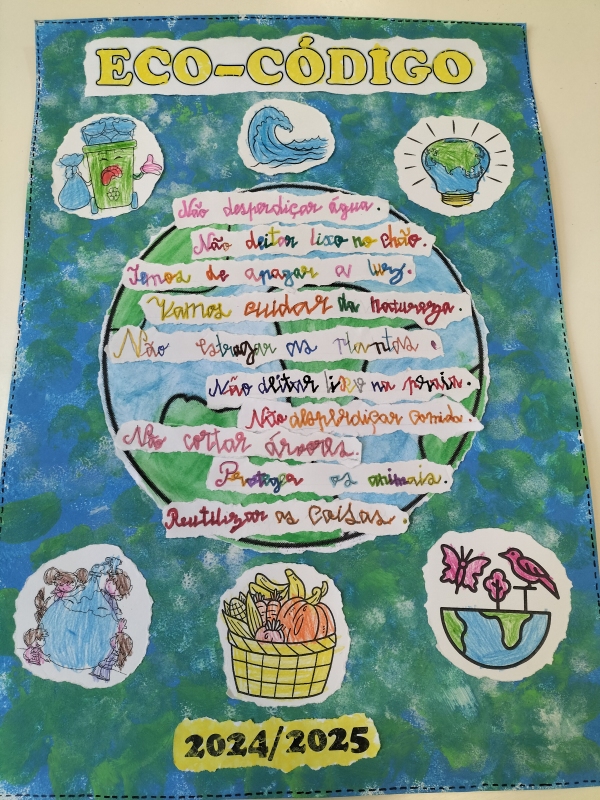 ECO-CÓDIGO
Não desperdiçar água.
Não deitar lixo no chão.
Temos de apagar a luz.
Vamos cuidar da Natureza.
Não estragar as plantas.
Não deitar lixo na praia.
Não desperdiçar comida.
Não cortar árvores.
Proteger os animais.
Reutilizar as coisas.
2024/2025